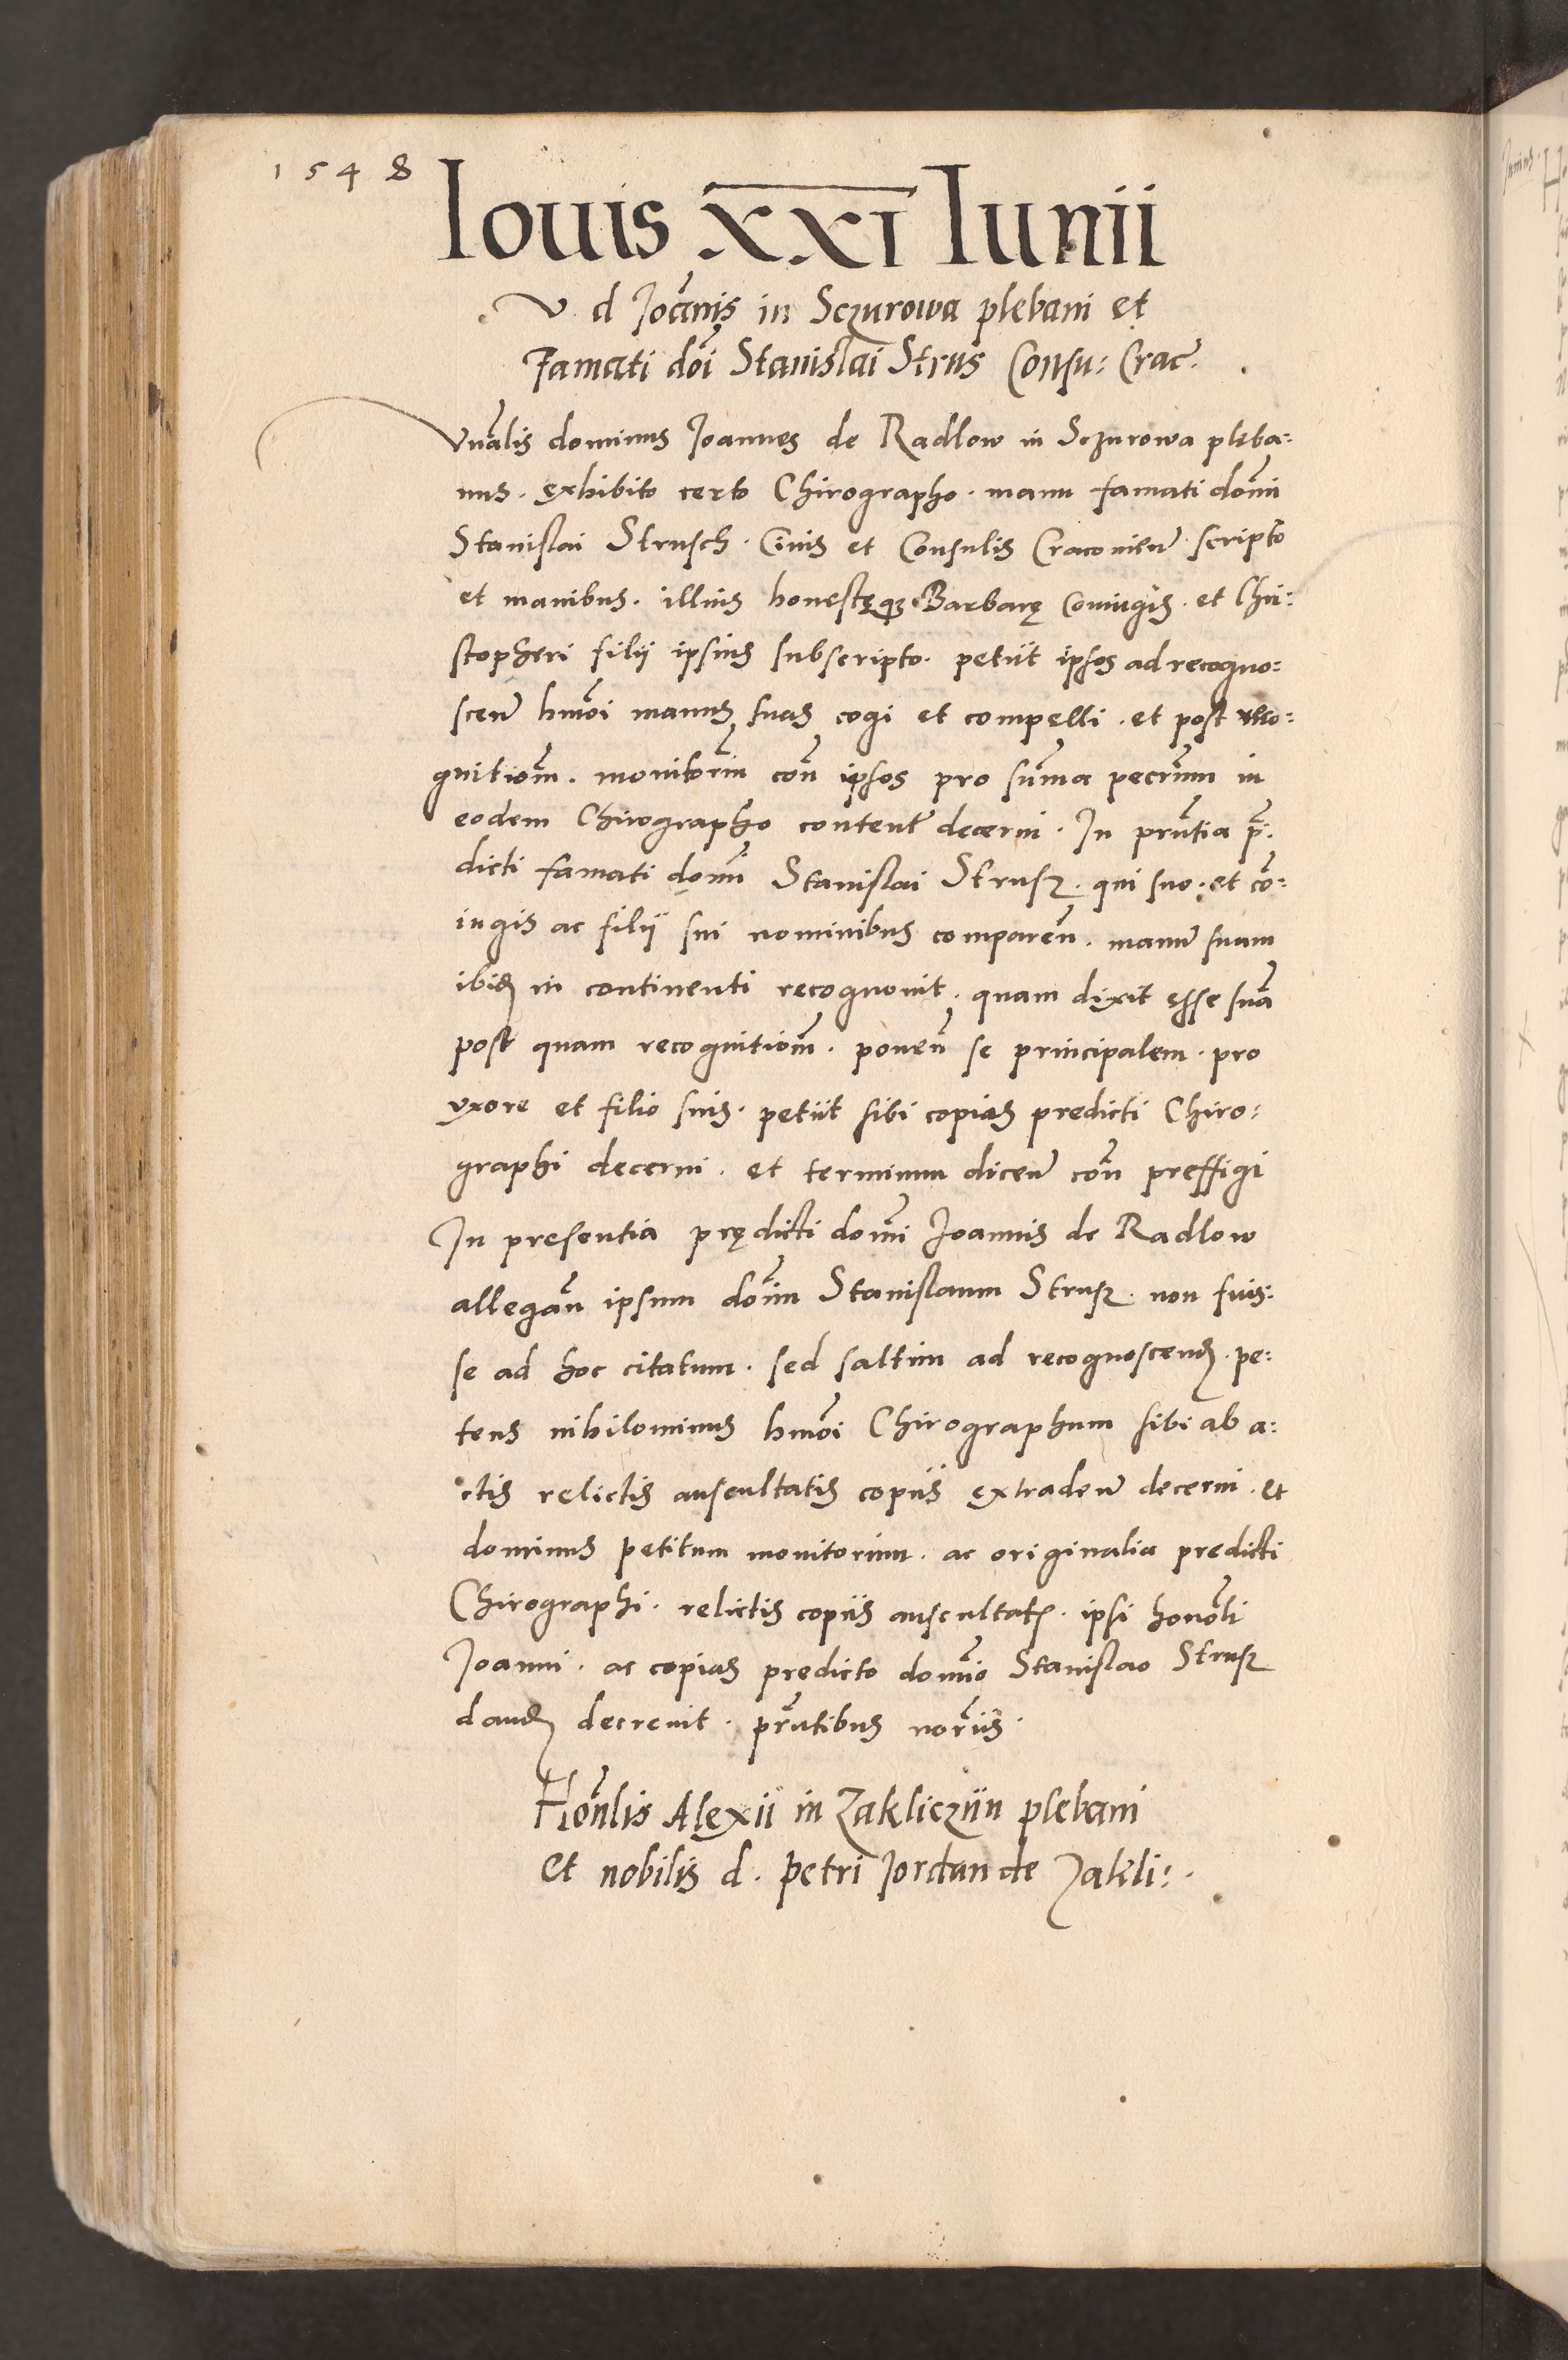 1548
Iouis XXI Iunii
V d Joan̄is in Sczurowa plebani et
Famati doī Stanislai Strus Consu: Crac̄.
Vnālis dominus Joannes de Radlow in Sczurowa pleba:
nus. exhibito certo Chirographo. manu famati domī
Stanislai Strusch. Ciuis et Consulis Cracovien̄ scripto
et manibus. illius honestęqȝ Barbarę Coniugis. et Chri:
stopheri filij ipsius subscripto. petiit ipsos ad recogno:
scen̄ hmōi manus suas cogi et compelli. et post reco:
gnitiom̄. monitoriū con̄ ipsos pro sum̄a pecrūm in
eodem Chirographo content̄ decerni. In prn̄tia p̄:
dicti famati domī Stanislai Strusz. qui suo. et cō:
iugis ac filij sui nominibus comparen̄. manū suam
ibidē in continenti recognouit. quam dixit esse suā
post quam recognitiom̄. ponen̄ se principalem. pro
vxore et filio suis. petiit sibi copias predicti Chiro:
graphi decerni. et terminum dicen̄ con̄ preffigi
In presentia prędicti domī Joannis de Radlow
allegan̄ ipsum donī̄m Stanislaum Strusz. non fuis:
se ad hoc citatum. sed saltim ad recognoscendȝ. pe:
tens nihilominus hmōi Chirographum sibi ab a:
ctis relictis auscultatis copiis extraden̄ decerni. et
dominus petitum monitorium. ac originalia predicti
Chirographi. relictis copiis auscultatȝ. ipsi honōli
Joanni. ac copias predicto domīo Stanislao Strusz
dandȝ decreuit. prn̄tibus nor̄iis.
Hon̄lis Alexii in Zakliczÿn plebani
et nobilis d. Petri Jordan de Zakli:.